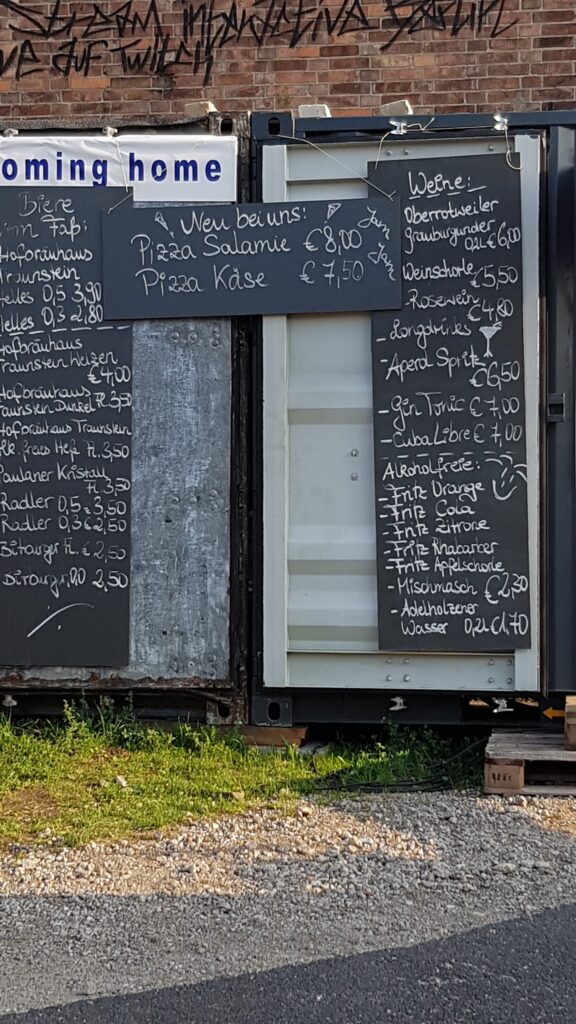 Stream interactive Berlin
ve auf Twitch
oming home
Biere
Faß:
Hofbräuhaus
Traunstein
Helles 0,5 3,90
Helles 0,3 2,80
Hofbräuhaus
Traunstein Weizen
€4,00
Hofbräuhaus
Traunstein Dunkel Fl. 3,50
Hofbräuhaus Traunstein
Hefe Fl. 3,50
Paulaner Kristall
Fl. 3,50
Radler 0,5 = 3,50
Radler 0,3 € 2,50
Bitburger Fl. € 2,50
Bitburger 0,0 2,50
Neu bei uns:
Pizza Salamie €8,00
Pizza Käse € 7,50
Jam
Jam
Weine:
Oberrotweiler
Grauburgunder
0,2L €6,00
Weinschorle
€5,50
Rosewein
€4,80
-Longdrinks
-Aperol Spritz
€6,50
-Gin Tonic € 7,00
-Cuba Libre € 7,00
Alkoholfreie:
-Fritz Orange
-Fritz Cola
-Fritz Zitrone
-Fritz Rhabarber
-Fritz Apfelschorle
-Mischmasch €2,50
-Adelholzener
Wasser 0,2l €1,70